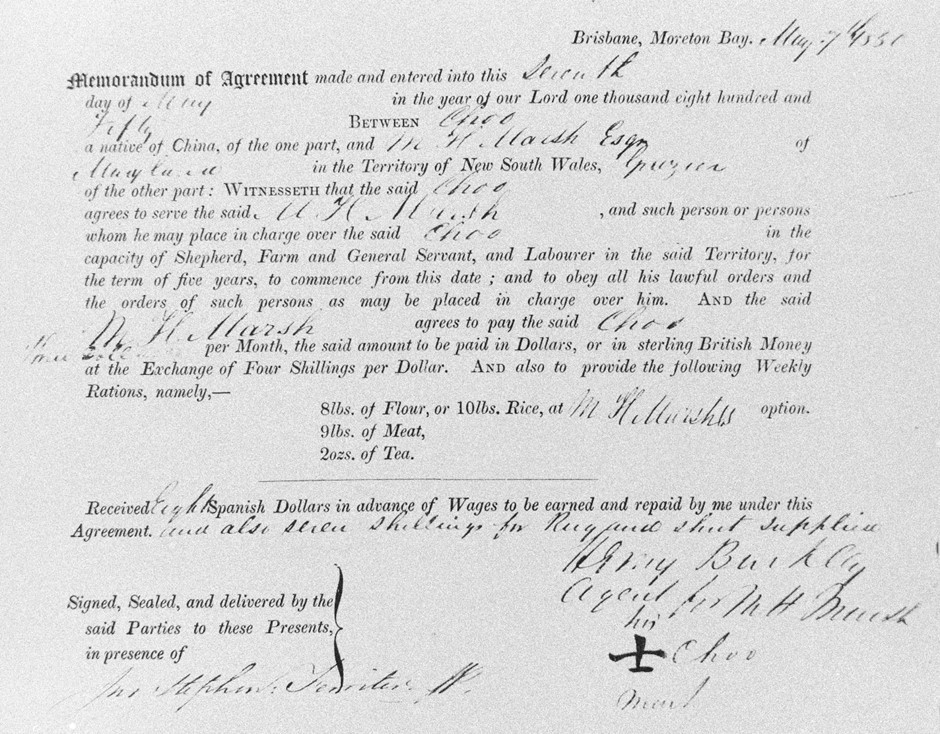 Brisbane, Moreton Bay. May 7th 1850
Memorandum of Agreement made and entered into this Seventh
day of May in the year of our Lord one thousand eight hundred and
Fifty BETWEEN Choo
a native of China, of the one part, and M H Marsh Esqr of
Maryland in the Territory of New South Wales, Grazier
of the other part: WITNESSETH that the said Choo
agrees to serve the said M H Marsh , and such person or persons
whom he may place in charge over the said Choo in the
capacity of Shepherd, Farm and General Servant, and Labourer in the said Territory, for
the term of five years, to commence from this date ; and to obey all his lawful orders and
the orders of such persons as may be placed in charge over him. AND the said
M H Marsh agrees to pay the said Choo
per Month, the said amount to be paid in Dollars, or in sterling British Money
at the Exchange of Four Shillings per Dollar. AND also to provide the following Weekly
Rations, namely,—
8lbs. of Flour, or 10lbs. Rice, at M H Marsh's option.
9lbs. of Meat,
2ozs. of Tea.
Received Eight Spanish Dollars in advance of Wages to be earned and repaid by me under this
Agreement. and also seven shillings for Rug and shirt supplied
Henry Buckley
Agent for M H Marsh
Signed, Sealed, and delivered by the
said Parties to these Presents,
in presence of
his
Choo
mark